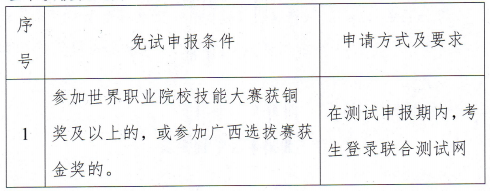 序号
免试申报条件
申请方式及要求
1
参加世界职业院校技能大赛获铜
奖及以上的，或参加广西选拔赛获
金奖的。
在测试申报期内，考
生登录联合测试网